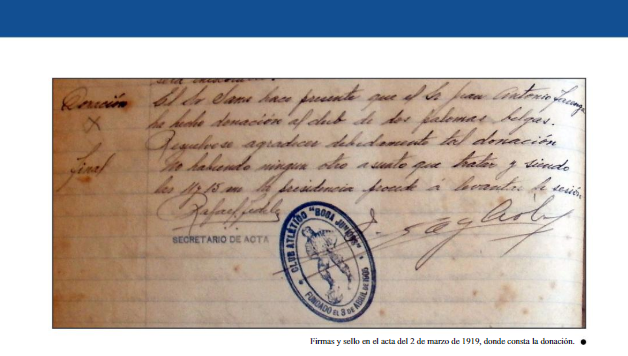 Donación
El Sr Sans hace presente que el Sr Juan Antonio
ha hecho donación al club de dos palomas belgas.
Resuélvese agradecer debidamente tal donación
Final
No habiendo ningun otro asunto que tratar y siendo
las 11 y 15 la presidencia procede á levantar la sesión
Rafael
SECRETARIO DE ACTA
CLUB ATLÉTICO "BOCA JUNIORS"
FUNDADO EL 3 DE ABRIL DE 1905
Firmas y sello en el acta del 2 de marzo de 1919, donde consta la donación.